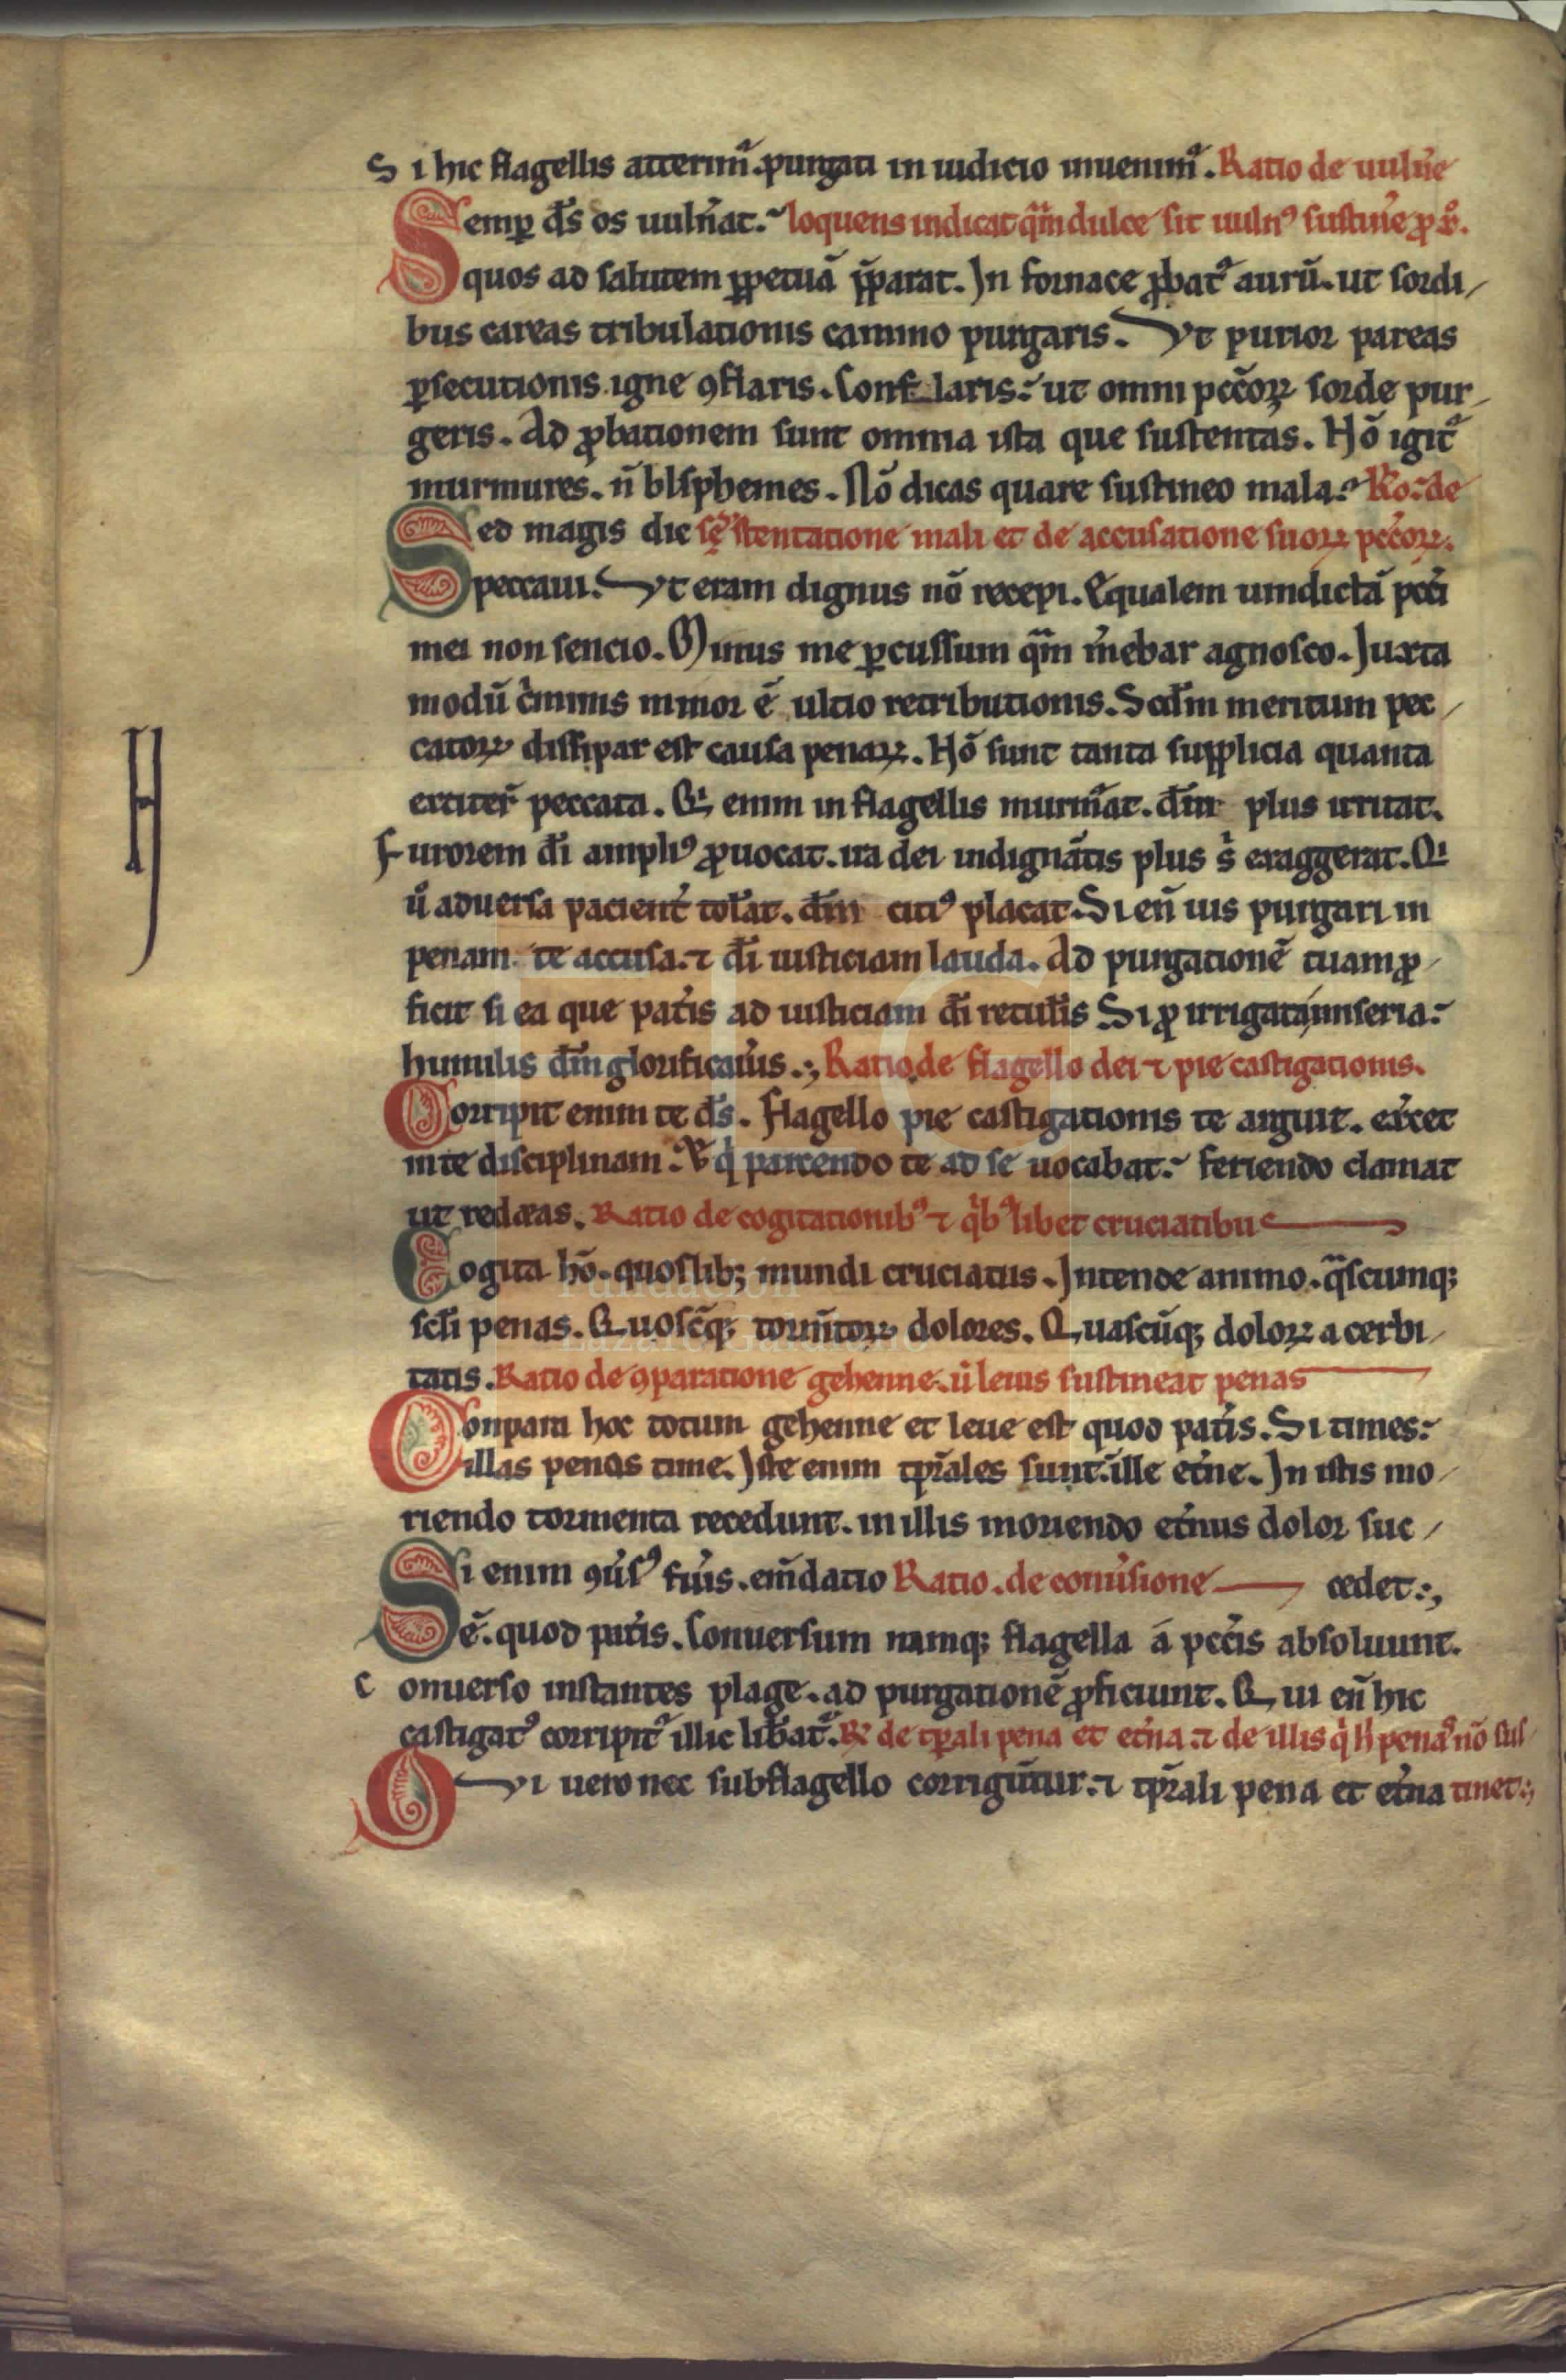 S i hic flagellis atterimᷣ. purgati in iudicio inuenimᷣ. Ratio de uuln̄e
Semꝑ d̄s os uuln̄at. loquens indicat q̄m dulce sit uulnꝰ sustin̄e ꝓ x̄.
quos ad salutem ꝑpetuā p̄parat. In fornace ꝓbatᷣ aurū. ut sordi/
bus careas tribulationis camino purgaris. Vt purior pareas
ꝑsecutionis igne ꝯflaris. Conflaris: ut omni pcc̄oꝝ sorde pur/
geris. Ad ꝓbationem sunt omnia ista que sustentas. Nō igitᷣ
murmures. n̄ blsphemes. Nō dicas quare sustineo mala. Ro. de
Sed magis dic sustentatione mali et de accusatione suoꝝ pcc̄oꝝ.
peccaui. Vt eram dignus nō recepi. Equalem uindictā pcc̄i
mei non sencio. Minus me ꝑcussum q̄m m̄ebar agnosco. Iuxta
modū c̄minis minor ē ultio retributionis. Scd̄m meritum pec/
catoꝝ dissipar est causa penaꝝ. Nō sunt tanta supplicia quanta
extiter̄ peccata. Qi enim in flagellis murm̄at. d̄m plus irritat.
Furorem d̄i ampliꝰ ꝓuocat. ira dei indignātis plus s̄ exaggerat. Qi
ū aduersa pacient̄ tol̄at. d̄m citiꝰ placat. Si en̄ uis purgari in
penam te accusa. ⁊ d̄i iusticiam lauda. Ad purgationē tuam ꝓ/
ficit si ea que pat̄is ad iusticiam d̄i retul̄is Si ꝓ irrigata miseria:
humilis d̄m glorificau̅is.; Ratio de flagello dei ⁊ pie castigationis.
Corripit enim te d̄s. Flagello pie castigationis te arguit. ex̄cet
in te disciplinam. Et q̄ parcendo te ad se uocabat. feriendo clamat
ut redeas. Ratio de cogitationibꝰ ⁊ q̄bꝰlibet cruciatibus
Cogita hō. quoslib; mundi cruciatus. Intende animo. q̄scumq;
scl̄i penas. Quosc̄q; torm̄toꝝ dolores. Quascūq; doloꝝ acerbi/
tatis. Ratio de ꝯparatione gehenne. ū leuis sustineat penas
Conpara hoc totum gehenne et leue est quod pat̄is. Si times:
illas penas time. Iste enim tp̄rales sunt. ille et̄ne. In istis mo/
riendo tormenta recedunt. in illis moriendo et̄nus dolor suc/
Si enim ꝯu̅sꝰ fu̅is. em̄datio Ratio. de conu̅sione cedet:,
ē. quod pat̄is. Conuersum namq; flagella á pcc̄is absoluunt.
C onuerso instantes plage. ad purgationē ꝓficiunt. Qui en̄ hic
castigatꝰ corripitᷣ illic lib̄atᷣ. R̄ de tp̄rali pena et et̄na. ⁊ de illis q̄ h̄ pena nō sus/
Qui uero nec sub flagello corrigūtur. ⁊ tp̄rali pena et et̄na tinet:,